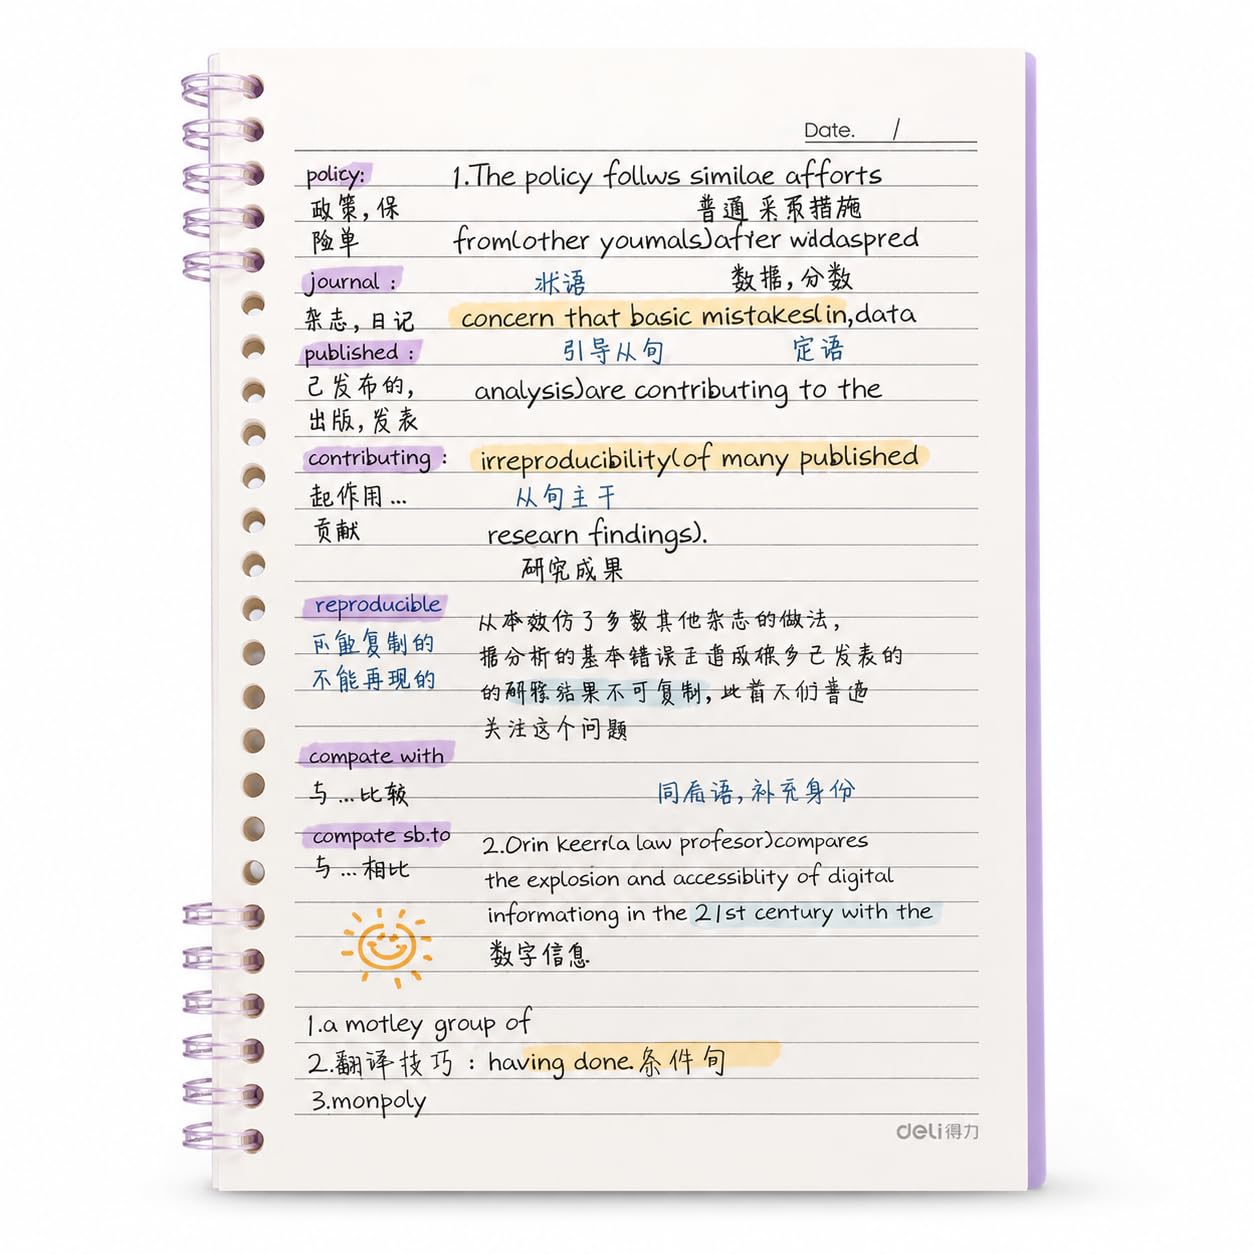 Date. /
policy:
1.The policy follws similae afforts
政策,保
普通 采系措施
险单
from(other youmals)after widdaspred
journal :
状语
数据,分数
杂志,日记
concern that basic mistakes(in,data
published :
引导从句
定语
已发布的,
analysis)are contributing to the
出版,发表
contributing :
irreproducibility(of many published
起作用...
从句主干
贡献
researn findings).
研究成果
reproducible
从本效仿了多数其他杂志的做法,
能复制的
据分析的基本错误正造成很多已发表的
不能再现的
的研 结果不可复制,此前 普
关注这个问题
compate with
与...比较
补充身份
compate sb.to
2.Orin keerr(a law profesor)compares
与...相比
the explosion and accessiblity of digital
informationg in the 21st century with the
数字信息
1.a motley group of
2.翻译技巧:having done.条件句
3.monpoly
deli得力